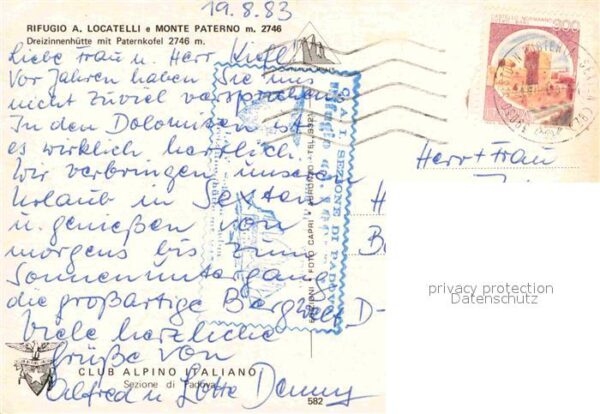 19.8.83
RIFUGIO A. LOCATELLI e MONTE PATERNO m. 2746
Dreizinnenhütte mit Paternkofel 2746 m.
Liebe Frau u. Herr
Vor Jahren haben Sie uns
nicht zuviel versprochen
In den Dolomiten ist
es wirklich herrlich.
Wir verbringen unseren
Urlaub in Sexten
u. genießen von
morgens bis zum
Sonnenuntergang
die großartige Bergwelt
Viele herzliche
Grüße von
Alfred u. Lotte
CLUB ALPINO ITALIANO
Sezione di Padova
C.A.I. SEZIONE DI PADOVA
EDIZIONI FOTO CAPRI - AURONZO - TEL. 9321
582
300
Herr + Frau
H
B
D-
privacy protection
Datenschutz